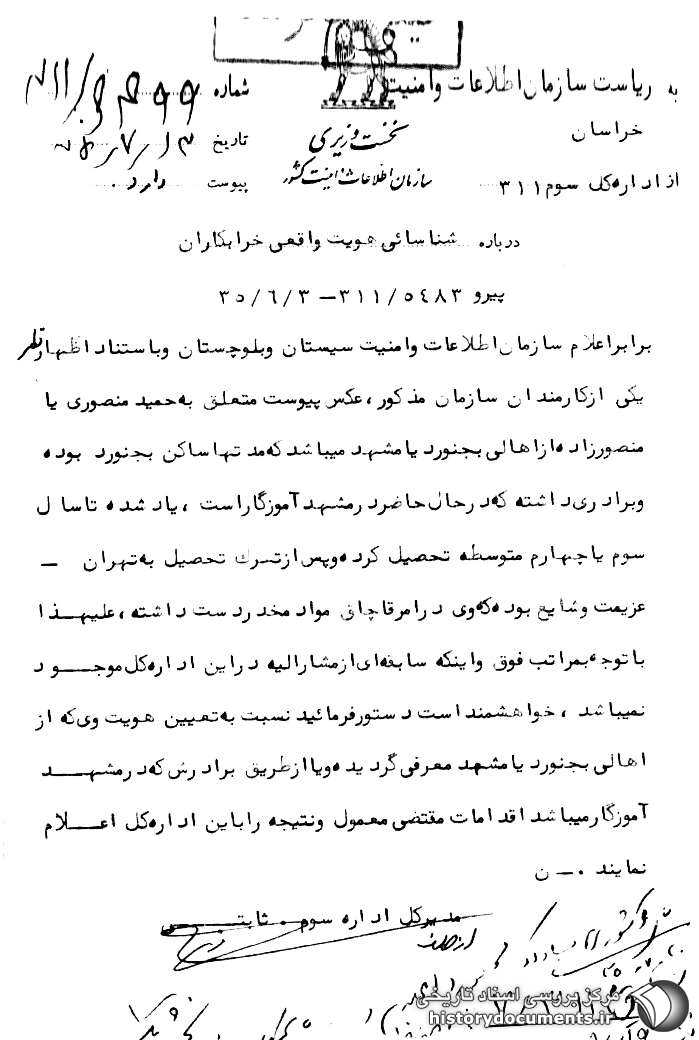 به ریاست سازمان اطلاعات وامنیت
خراسان
از اداره کل سوم ۳۱۱
نخست وزیری
سازمان اطلاعات و امنیت کشور
شماره
تاریخ
پیوست دارد
درباره شناسائی هویت واقعی خرابکاران
پیرو ۳۱۱/۵۴۸۳ – ۳۵/۶/۳
برابر اعلام سازمان اطلاعات وامنیت سیستان وبلوچستان وباستناد اظهارنظر
یکی ازکارمندان سازمان مذکور، عکس پیوست متعلق به حمید منصوری یا
منصورزاده ازاهالی بجنورد یا مشهد میباشد که مدتها ساکن بجنورد بوده
وبرادری داشته که درحال حاضر در مشهد آموزگار است ، یاد شده تا سال
سوم یا چهارم متوسطه تحصیل کرده وپس ازترک تحصیل به تهران –
عزیمت وشایع بوده که وی درامر قاچاق مواد مخدر دست داشته ، علیهذا
با توجه بمراتب فوق واینکه سابقه ای ازمشارالیه دراین اداره کل موجود
نمیباشد ، خواهشمند است دستورفرمائید نسبت به تعیین هویت وی که از
اهالی بجنورد یا مشهد معرفی گردیده ویا ازطریق برادرش که درمشهد
آموزگارمیباشد اقدامات مقتضی معمول ونتیجه راباین اداره کل اعلام
نمایند ۰– ن
مدیرکل اداره سوم . ثابتی
از طرف
مرکز بررسی اسناد تاریخی
historydocuments.ir